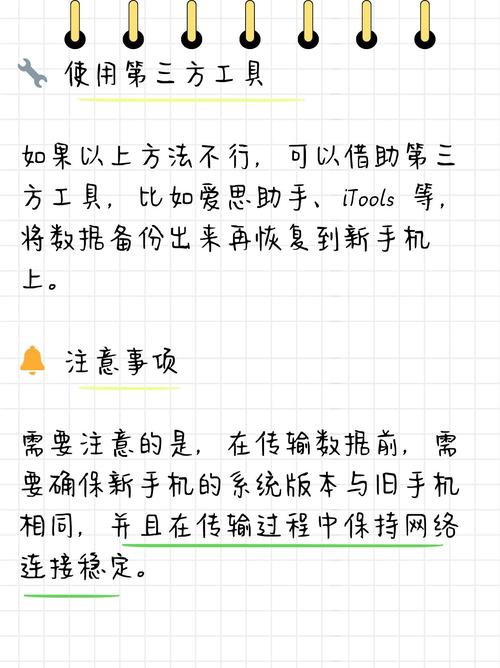 使用第三方工具
如果以上方法不行，可以借助第三
方工具，比如爱思助手、iTools 等，
将数据备份出来再恢复到新手机
上。
注意事项
需要注意的是，在传输数据前，需
要确保新手机的系统版本与旧手机
相同，并且在传输过程中保持网络
连接稳定。